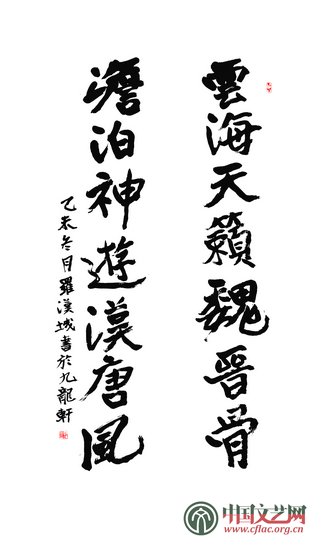 雲海天籟魏晉骨
澹泊神遊漢唐風
乙未冬月羅漢城書於九龍軒
中国文艺网
www.cflac.org.cn